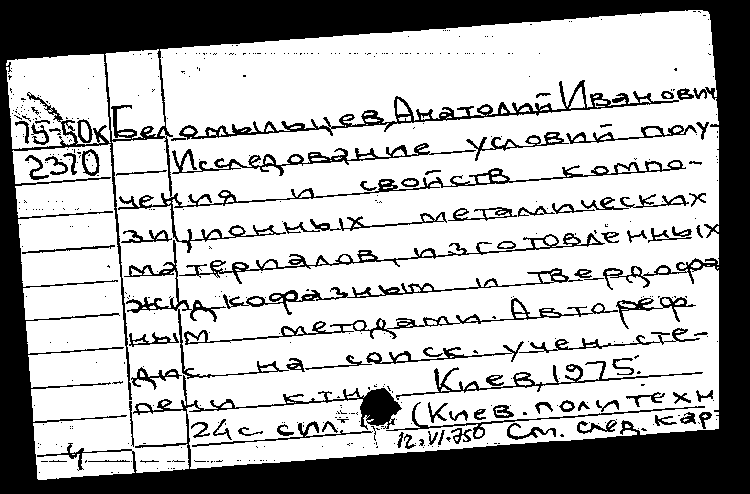 75-50к Беломыльцев, Анатолий Иванович
2370 Исследование условий полу-
чения и свойств компо-
зиционных металлических
материалов, изготовленных
жидкофазным и твердофа
ным методами. Автореф
дис. на соиск. учен. сте-
пени к.т.н. Киев, 1975.
24 с. с ил. (Киев. политехн
4 12.VI.75 См. след. кар